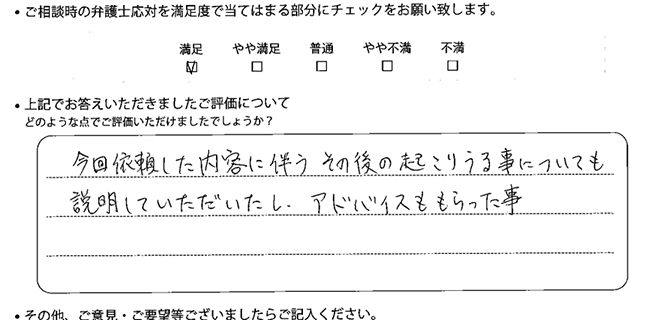 • ご相談時の弁護士応対を満足度で当てはまる部分にチェックをお願い致します。
満足 やや満足 普通 やや不満 不満
☑ □ □ □ □
• 上記でお答えいただきましたご評価について
どのような点でご評価いただけましたでしょうか？
今回依頼した内容に伴う その後の起こりうる事についても
説明していただいたし、アドバイスももらった事
• その他、ご意見・ご要望等ございましたらご記入ください。